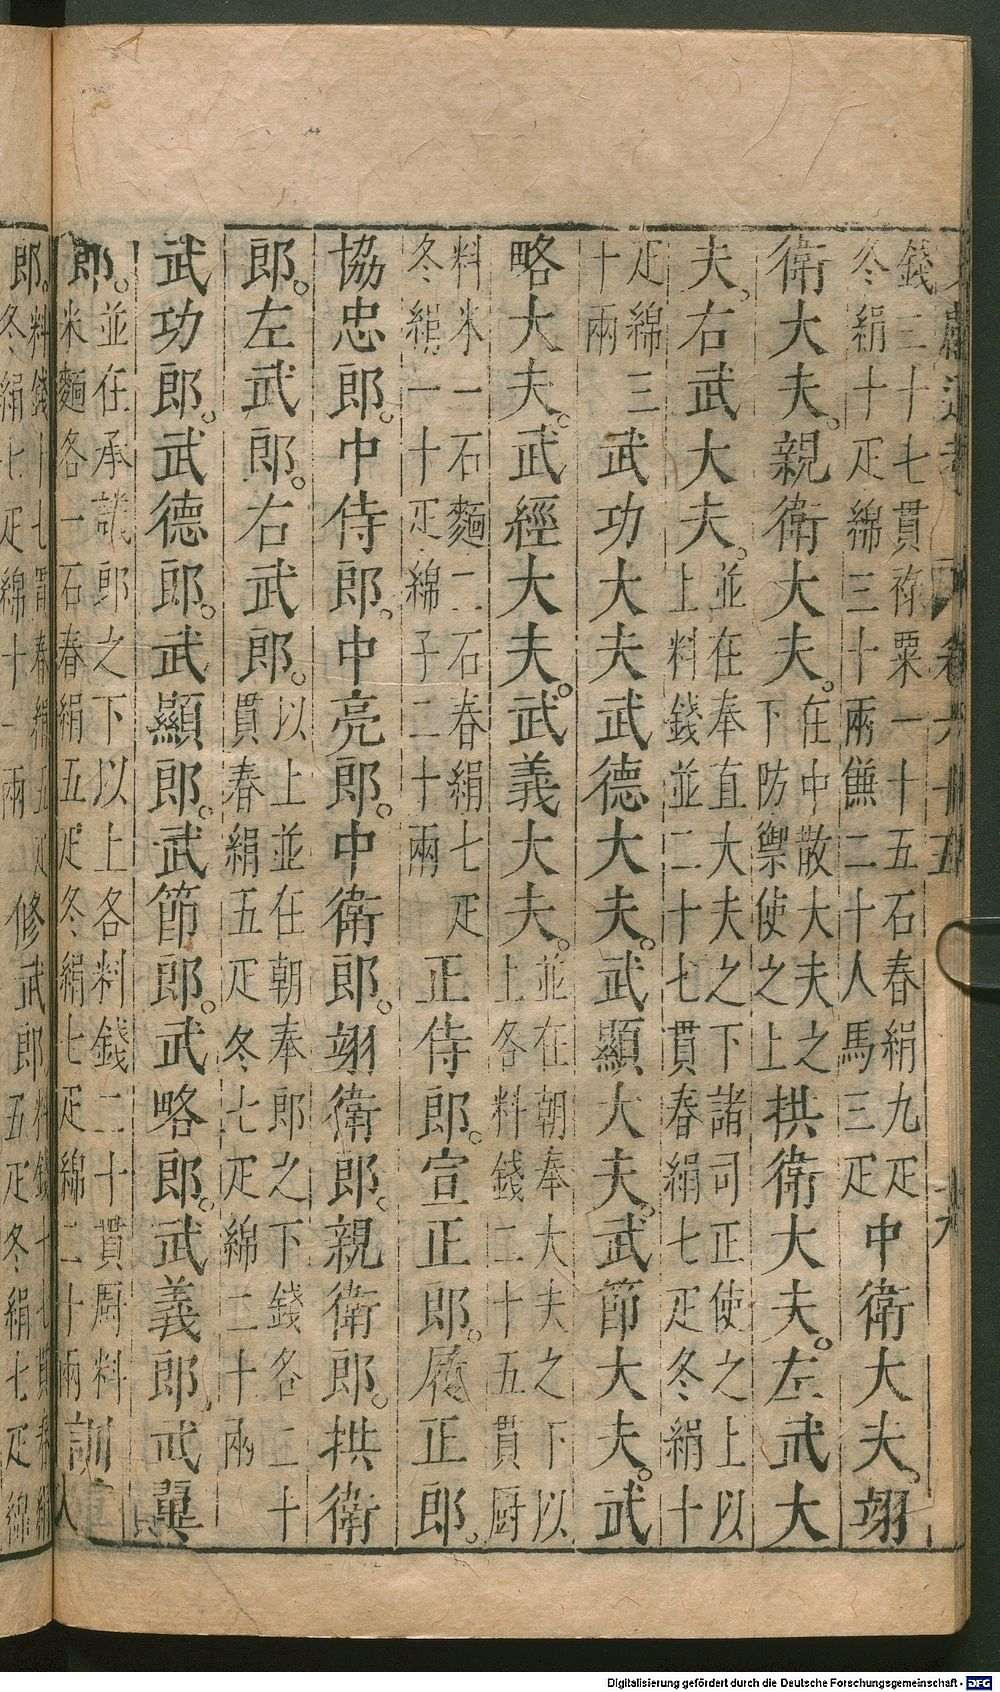 文獻通考 卷六十五 十九
錢三十七貫祿粟一十五石春絹九疋
冬絹十疋綿三十兩傔二十人馬三疋
中衛大夫。翊
衛大夫。親衛大夫。
在中散大夫之
下防禦使之上
拱衛大夫。左武大
夫。右武大夫。
並在奉直大夫之下諸司正使之上以
上料錢並二十七貫春絹七疋冬絹十
疋綿三
十兩
武功大夫武德大夫。武顯大夫。武節大夫。武
略大夫。武經大夫。武義大夫。
並在朝奉大夫之下以
上各料錢二十五貫厨
料米一石麵二石春絹七疋
冬絹一十疋綿子二十兩
正侍郎。宣正郎。履正郎。
協忠郎。中侍郎。中亮郎。中衛郎。翊衛郎。親衛郎。拱衛
郎。左武郎。右武郎。
以上並在朝奉郎之下錢各二十
貫春絹五疋冬七疋綿二十兩
武功郎。武德郎。武顯郎。武節郎。武略郎。武義郎。武翼
郎。
並在承議郎之下以上各料錢二十貫厨料
米麵各一石春絹五疋冬絹七疋綿二十兩
訓
人
郎。
料錢十七貫春絹五疋
冬絹七疋綿十二兩
修武郎
料錢十七貫春絹
五疋冬絹七疋綿
Digitalisierung gefördert durch die Deutsche Forschungsgemeinschaft - DFG